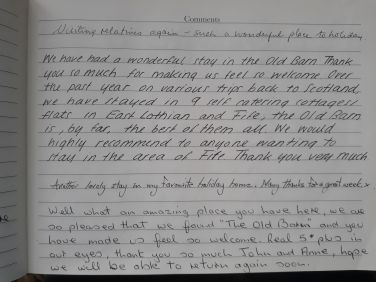 Comments
Visiting relatives again - such a wonderful place to holiday
We have had a wonderful stay in the Old Barn. Thank
you so much for making us feel so welcome. Over
the past year on various trips back to Scotland,
we have stayed in 9 self catering cottages/
flats in East Lothian and Fife, the Old Barn
is, by far, the best of them all. We would
highly recommend to anyone wanting to
stay in the area of Fife. Thank you very much
Another lovely stay in my favourite holiday home. Many thanks for a great week. x
Well what an amazing place you have here, we are
so pleased that we found "The Old Barn" and you
have made us feel so welcome. Real 5* plus in
our eyes, thank you so much John and Anne, hope
we will be able to return again soon.